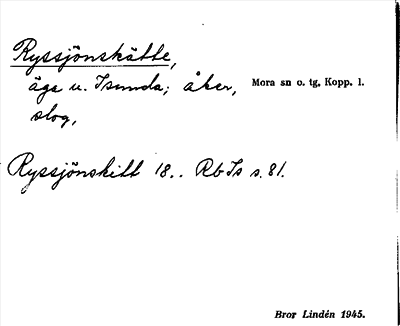 Ryssjönskätte,
äga u. Isunda; åker, Mora sn o. tg, Kopp. l.
slog,
Ryssjönskitt 18.. RbIs s. 81.
Bror Lindén 1945.